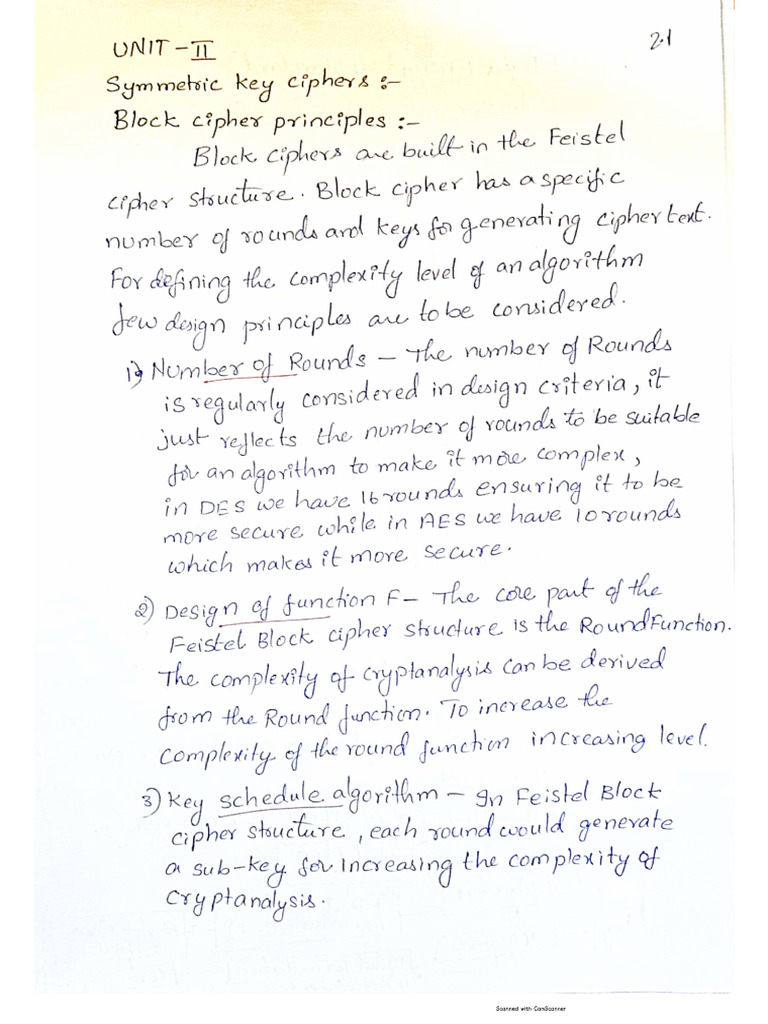 2.1
UNIT - II
Symmetric key ciphers :-
Block cipher principles :-
Block ciphers are built in the Feistel
cipher structure. Block cipher has a specific
number of rounds and keys for generating ciphertext.
For defining the complexity level of an algorithm
few design principles are to be considered.
1) Number of Rounds - The number of Rounds
is regularly considered in design criteria, it
just reflects the number of rounds to be suitable
for an algorithm to make it more complex,
in DES we have 16 rounds ensuring it to be
more secure while in AES we have 10 rounds
which makes it more secure.
2) Design of function F - The core part of the
Feistel Block cipher structure is the Round Function.
The complexity of cryptanalysis can be derived
from the Round function. To increase the
complexity of the round function increasing level.
3) Key schedule algorithm - In Feistel Block
cipher structure, each round would generate
a sub-key for increasing the complexity of
cryptanalysis.
Scanned with CamScanner